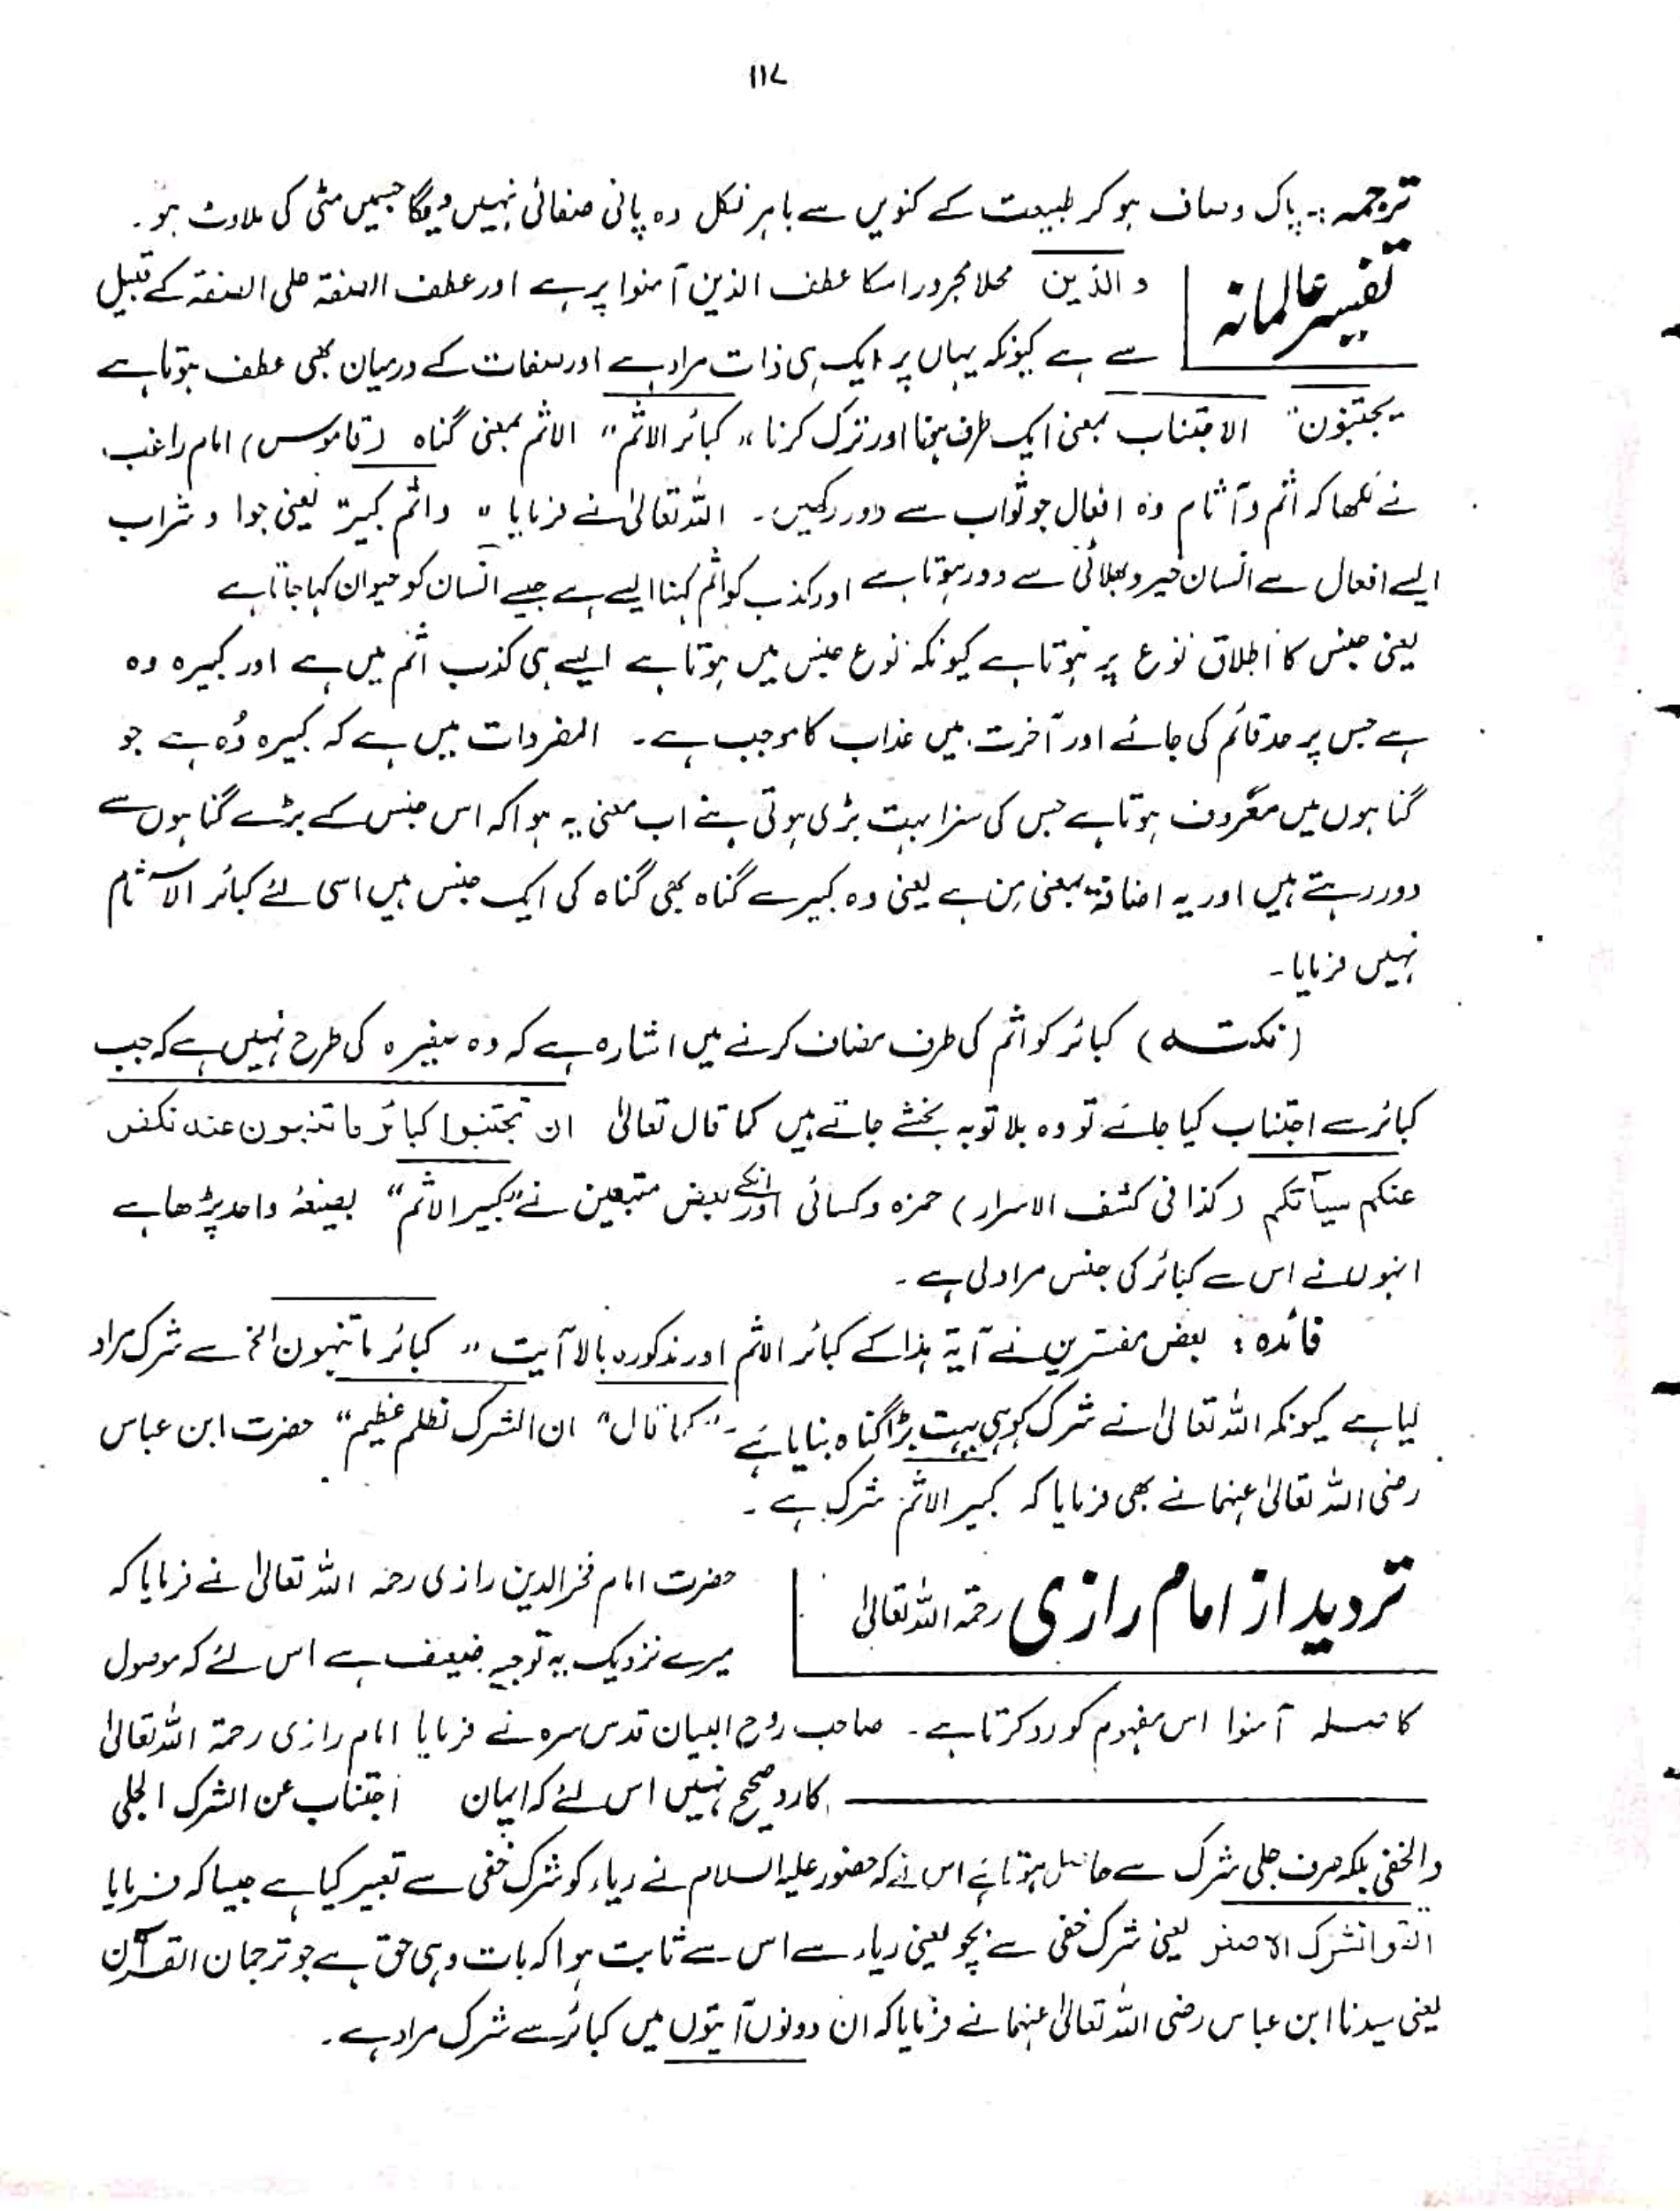 ۱۱۷
ترجمہ :۔ پاک و صاف ہو کر طبیعت کے کنویں سے باہر نکل وہ پانی صفائی نہیں دیگا جسمیں مٹی کی ملاوٹ ہو۔
تفسیر عالمانہ
والذین محلا مجرور اسکا عطف الذین آمنوا پر ہے اور عطف الصفۃ علی الصفۃ کے قبیل
سے ہے کیونکہ یہاں پر ایک ہی ذات مراد ہے اور صفات کے درمیان بھی عطف ہوتا ہے
یجتنبون" الاجتناب بمعنی ایک طرف ہٹنا اور ترک کرنا "کبائر الاثم" الاثم بمعنی گناہ (قاموس) امام راغب
نے لکھا کہ اثم و آثام وہ افعال جو ثواب سے دور رکھیں۔ اللہ تعالیٰ نے فرمایا " واثم کبیر" یعنی جوا و شراب
ایسے افعال سے انسان خیر و بھلائی سے دور ہوتا ہے اور کذب کو اثم کہنا ایسے ہے جیسے انسان کو حیوان کہا جاتا ہے
یعنی جنس کا اطلاق نوع پر ہوتا ہے کیونکہ نوع جنس میں ہوتا ہے ایسے ہی کذب اثم میں ہے اور کبیرہ وہ
ہے جس پر حد قائم کی جائے اور آخرت میں عذاب کا موجب ہے۔ المفردات میں ہے کہ کبیرہ وُہ ہے جو
گناہوں میں معروف ہوتا ہے جس کی سزا بہت بڑی ہوتی ہے اب معنی یہ ہوا کہ اس جنس کے بڑے گناہوں سے
دور رہتے ہیں اور یہ اضافۃ بمعنی مِن ہے یعنی وہ کبیرے گناہ بھی گناہ کی ایک جنس ہیں اسی لئے کبائر الآثام
نہیں فرمایا۔
(نکتہ) کبائر کو اثم کی طرف مضاف کرنے میں اشارہ ہے کہ وہ صغیرہ کی طرح نہیں ہے کہ جب
کبائر سے اجتناب کیا جائے تو وہ بلا توبہ بخشے جاتے ہیں کما قال تعالیٰ ان تجتنبوا کبائر ما تنہون عنہ نکفر
عنکم سیآتکم (کذا فی کشف الاسرار) حمزہ و کسائی اور انکے بعض متبعین نے "کبیر الاثم" بصیغۂ واحد پڑھا ہے
انہوں نے اس سے کبائر کی جنس مراد لی ہے۔
فائدہ : بعض مفسّرین نے آیۃ ہذا کے کبائر الاثم اور مذکورہ بالا آیت " کبائر ما تنہون الخ سے شرک مراد
لیا ہے کیونکہ اللہ تعالیٰ نے شرک کو ہی بہت بڑا گناہ بنایا ہے۔ "کما قال" ان الشرک لظلم عظیم" حضرت ابن عباس
رضی اللہ تعالیٰ عنہما نے بھی فرمایا کہ کبیر الاثم شرک ہے۔
تردید از امام رازی رحمۃ اللہ تعالیٰ
حضرت امام فخر الدین رازی رحمہ اللہ تعالیٰ نے فرمایا کہ
میرے نزدیک یہ توجیہ ضعیف ہے اس لئے کہ موصول
کا صلہ آمنوا اس مفہوم کو رد کرتا ہے۔ صاحب روح البیان قدس سرہ نے فرمایا امام رازی رحمۃ اللہ تعالیٰ
کا رد صحیح نہیں اس لئے کہ ایمان اجتناب عن الشرک الجلی
والخفی بلکہ صرف جلی شرک سے حاصل ہوتا ہے اس لئے کہ حضور علیہ السلام نے ریاء کو شرک خفی سے تعبیر کیا ہے جیسا کہ فرمایا
اتقوا الشرک الاصغر یعنی شرک خفی سے بچو یعنی ریاء سے اس سے ثابت ہوا کہ بات وہی حق ہے جو ترجمان القرآن
یعنی سیدنا ابن عباس رضی اللہ تعالیٰ عنہما نے فرمایا کہ ان دونوں آیتوں میں کبائر سے شرک مراد ہے۔